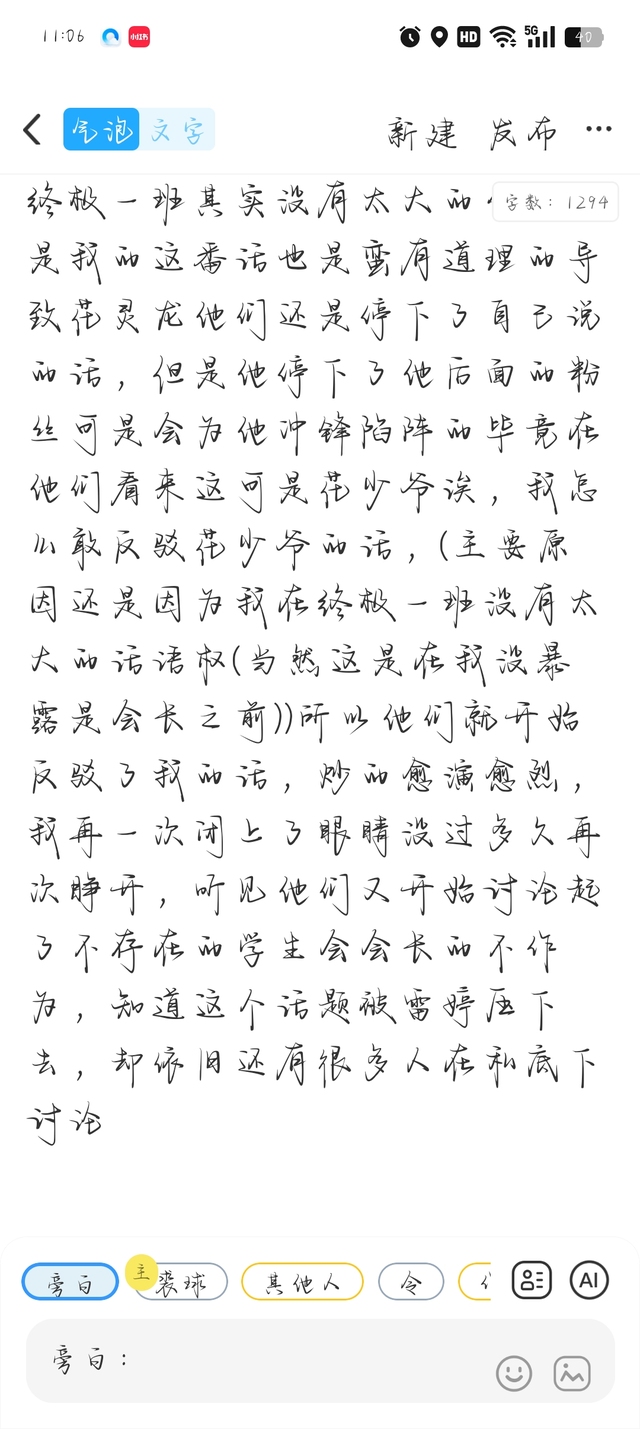 11:06
小红书
HD
5G
40
气泡 文字
新建 发布
字数：1294
终极一班其实没有太大的
是我的这番话也是蛮有道理的导
致花灵龙他们还是停下了自己说
的话，但是他停下了他后面的粉
丝可是会为他冲锋陷阵的毕竟在
他们看来这可是花少爷诶，我怎
么敢反驳花少爷的话，(主要原
因还是因为我在终极一班没有太
大的话语权(当然这是在我没暴
露是会长之前))所以他们就开始
反驳了我的话，炒的愈演愈烈，
我再一次闭上了眼睛没过多久再
次睁开，听见他们又开始讨论起
了不存在的学生会会长的不作
为，知道这个话题被雷婷压下
去，却依旧还有很多人在私底下
讨论
旁白
主
裘球
其他人
令
AI
旁白：